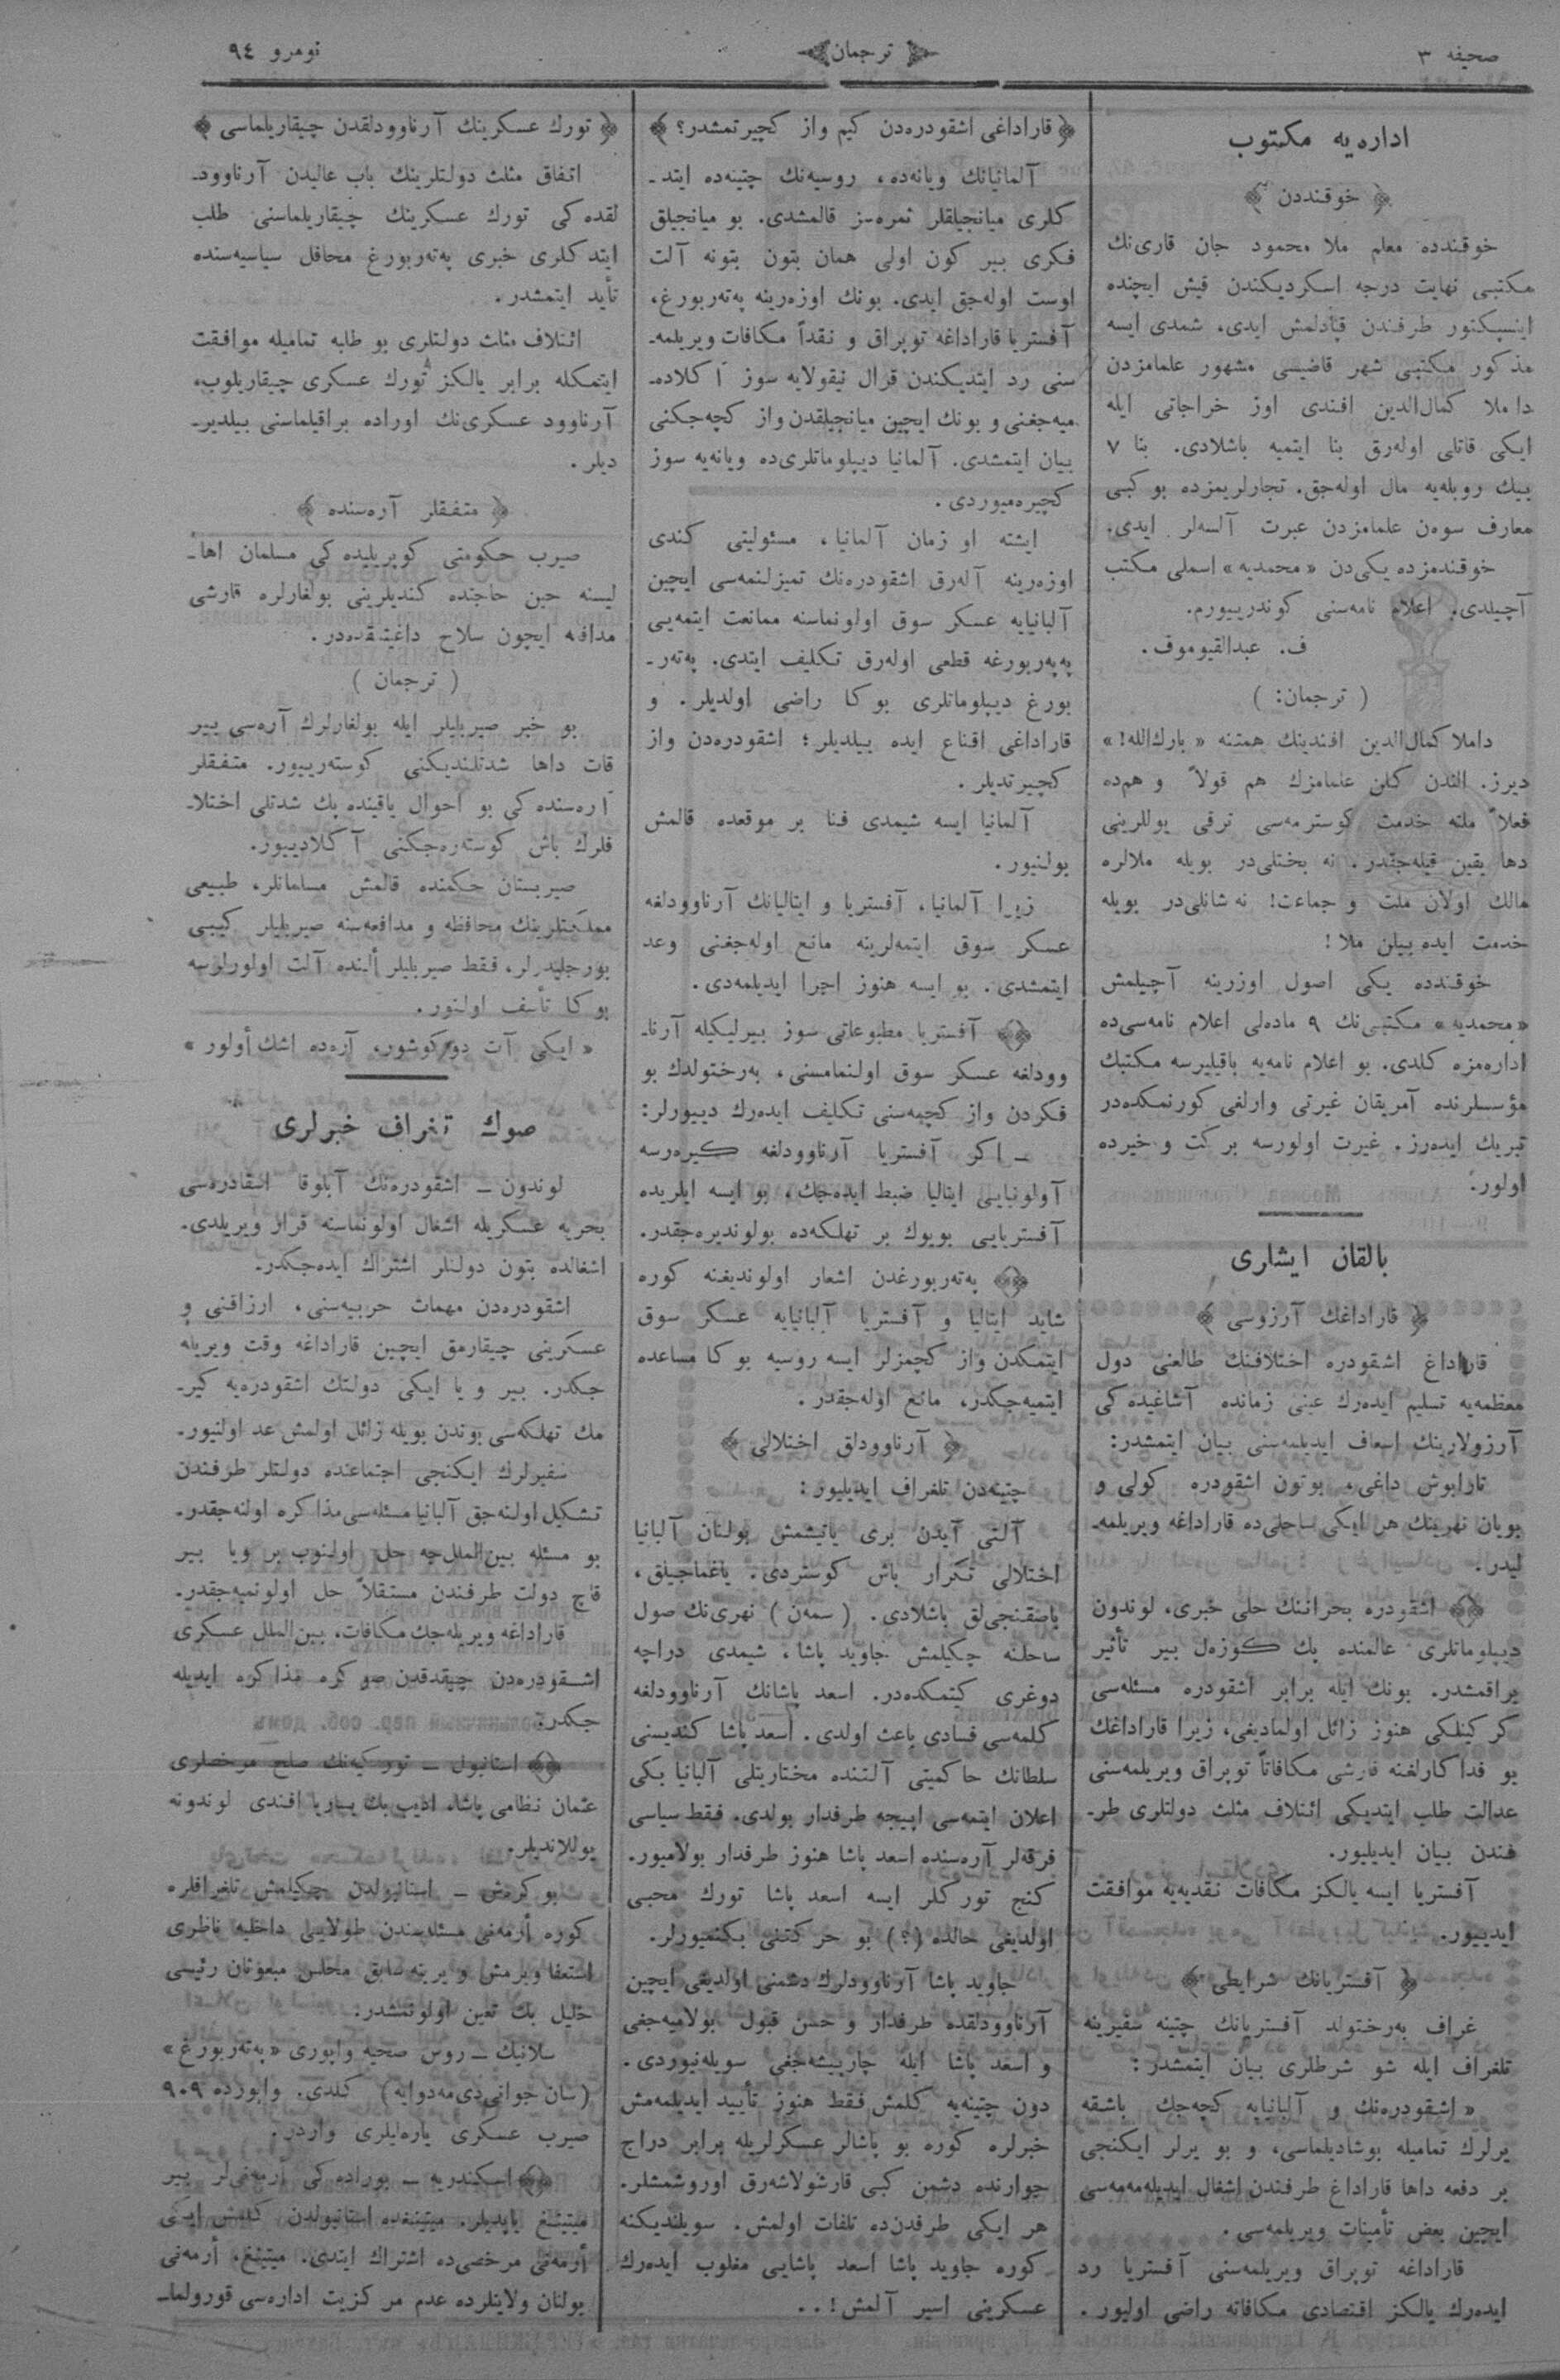 صحیفه ٣
ترجمان
نومرو ٩٤
اداره‌یه مكتوب
خوقنددن
خوقندده معلم ملا محمود جان قاری‌نك
مكتبی نهایت درجه اسكردیكندن قیش ایچنده
اینسپكتور طرفندن قپادلمش ایدی، شمدی ایسه
مذكور مكتبی شهر قاضیسی مشهور علمامزدن
داملا كمال‌الدین افندی اوز خراجاتی ایله
ایكی قاتلی اوله‌رق بنا ایتمیه باشلادی. بنا ٧
بیك روبله‌یه مال اوله‌جق. تجارلریمزده بو كبی
معارف سوه‌ن علمامزدن عبرت آلسه‌لر ایدی.
خوقندمزده یكی‌دن «محمدیه» اسملی مكتب
آچیلدی. اعلام نامه‌سنی كوندرییورم.
ف. عبدالقیوموف.
(ترجمان:)
داملا كمال‌الدین افندینك همتنه «بارك‌الله!»
دیرز. الندن كلن علمامزك هم قولاً و هم‌ده
فعلاً ملته خدمت كوسترمه‌سی ترقی یوللرینی
دها یقین قیله‌جقدر. نه بختلی‌در بویله ملالره
مالك اولان ملت و جماعت! نه شانلی‌در بویله
خدمت ایده بیلن ملا!
خوقندده یكی اصول اوزرینه آچیلمش
«محمدیه» مكتبی‌نك ٩ ماده‌لی اعلام نامه‌سی‌ده
اداره‌مزه كلدی. بو اعلام نامه‌یه باقیلیرسه مكتبك
مؤسسلرنده آمریقان غیرتی وارلغی كورنمكده‌در
تبریك ایده‌رز. غیرت اولورسه بركت و خیرده
اولور.
بالقان ایشلری
قاراداغك آرزوسی
قاراداغ اشقودره اختلافنك طالعنی دول
معظمه‌یه تسلیم ایده‌رك عینی زمانده آشاغیده‌كی
آرزولارینك اسعاف ایدیلمه‌سنی بیان ایتمشدر:
تارابوش داغی، بوتون اشقودره كولی و
بویان نهرینك هر ایكی ساحلی‌ده قاراداغه ویریلمه‌ـ
لیدر.
اشقودره بحراننك حلی خبری، لوندون
دیپلوماتلری عالمنده پك كوزه‌ل بیر تأثیر
براقمشدر. بونك ایله برابر اشقودره مسئله‌سی
كركینلكی هنوز زائل اولمادیغی، زیرا قاراداغك
بو فداكارلغنه قارشی مكافاتاً توپراق ویریلمه‌سنی
عدالت طلب ایتدیكی ائتلاف مثلث دولتلری طرـ
فندن بیان ایدیلیور.
آفستریا ایسه یالكز مكافات نقدیه‌یه موافقت
ایدییور.
آفستریانك شرایطی
غراف به‌رختولد آفستریانك چتینه سفیرینه
تلغراف ایله شو شرطلری بیان ایتمشدر:
«اشقودره‌نك و آلبانیایه كچه‌جك باشقه
یرلرك تمامیله بوشادیلماسی، و بو یرلر ایكنجی
بر دفعه داها قاراداغ طرفندن اشغال ایدیله‌مه‌مه‌سی
ایچین بعض تأمینات ویریلمه‌سی.
قاراداغه توپراق ویریلمه‌سنی آفستریا رد
ایده‌رك یالكز اقتصادی مكافاته راضی اولیور.
قاراداغی اشقودره‌دن كیم واز كچیرتمشدر؟
آلمانیانك ویانه‌ده، روسیه‌نك چتینه‌ده ایتدـ
كلری میانجیلقلر ثمره‌سز قالمشدی. بو میانجیلق
فكری بیر كون اولی همان بتون بتونه آلت
اوست اوله‌جق ایدی. بونك اوزه‌رینه په‌ته‌ربورغ،
آفستریا قاراداغه توپراق و نقداً مكافات ویریلمه‌ـ
سنی رد ایتدیكندن قرال نیقولایه سوز آكلاده‌ـ
میه‌جغنی و بونك ایچین میانجیلقدن واز كچه‌جكنی
بیان ایتمشدی. آلمانیا دیپلوماتلری‌ده ویانه‌یه سوز
كچیره‌میوردی.
ایشته او زمان آلمانیا، مسئولیتی كندی
اوزه‌رینه آله‌رق اشقودره‌نك تمیزلنمه‌سی ایچین
آلبانیایه عسكر سوق اولونماسنه ممانعت ایتمه‌یی
په‌په‌ربورغه قطعی اوله‌رق تكلیف ایتدی. په‌ته‌رـ
بورغ دیپلوماتلری بوكا راضی اولدیلر. و
قاراداغی اقناع ایده بیلدیلر؛ اشقودره‌دن واز
كچیرتدیلر.
آلمانیا ایسه شیمدی فنا بر موقعده قالمش
بولنیور.
زیرا آلمانیا، آفستریا و ایتالیانك آرناوودلغه
عسكر سوق ایتمه‌لرینه مانع اوله‌جغنی وعد
ایتمشدی. بو ایسه هنوز اجرا ایدیلمه‌دی.
آفستریا مطبوعاتی سوز بیرلیكیله آرناـ
وودلغه عسكر سوق اولنمامسنی، به‌رختولدك بو
فكردن واز كچمه‌سنی تكلیف ایده‌رك دییورلر:
ـ اكر آفستریا آرناوودلغه كیره‌رسه
آولونیایی ایتالیا ضبط ایده‌جك، بو ایسه ایلریده
آفستریایی بویوك بر تهلكه‌ده بولوندیره‌جقدر.
په‌ته‌ربورغدن اشعار اولوندیغنه كوره
شاید ایتالیا و آفستریا آلبانیایه عسكر سوق
ایتمكدن واز كچمزلر ایسه روسیه بوكا مساعده
ایتمیه‌جكدر، مانع اوله‌جقدر.
آرناوودلق اختلالی
چتینه‌دن تلغراف ایدیلیور:
آلتی آیدن بری یاتیشمش بولنان آلبانیا
اختلالی تكرار باش كوستردی. یاغماجیلق،
باصقنجی‌لق باشلادی. (سمه‌ن) نهری‌نك صول
ساحلنه چكیلمش جاوید پاشا، شیمدی دراچه
دوغری كیتمكده‌در. اسعد پاشانك آرناوودلغه
كلمه‌سی فسادی باعث اولدی. اسعد پاشا كندیسنی
سلطانك حاكمیتی آلتنده مختاریتلی آلبانیا بكی
اعلان ایتمه‌سی اپیجه طرفدار بولدی. فقط سیاسی
فرقه‌لر آره‌سنده اسعد پاشا هنوز طرفدار بولامیور.
كنج توركلر ایسه اسعد پاشا تورك محبی
اولدیغی حالده (؟) بو حركتنی بكنمیورلر.
جاوید پاشا آرناوودلرك دشمنی اولدیغی ایچین
آرناوودلقده طرفدار و حسن قبول بولامیه‌جغی
و اسعد پاشا ایله چارپیشه‌جغی سویله‌نیوردی.
دون چتینه‌یه كلمش فقط هنوز تأیید ایدیلمه‌مش
خبرلره كوره بو پاشالر عسكرلریله برابر دراج
جوارنده دشمن كبی قارشولاشه‌رق اوروشمشلر.
هر ایكی طرفدن‌ده تلفات اولمش. سویلندیكنه
كوره جاوید پاشا اسعد پاشایی مغلوب ایده‌رك
عسكرینی اسیر آلمش!..
تورك عسكرینك آرناوودلقدن چیقاریلماسی
اتفاق مثلث دولتلرینك باب عالیدن آرناوودـ
لقده‌كی تورك عسكرینك چیقاریلماسنی طلب
ایتدكلری خبری په‌ته‌ربورغ محافل سیاسیه‌سنده
تأید ایتمشدر.
ائتلاف مثلث دولتلری بو طلبه تمامیله موافقت
ایتمكله برابر یالكز تورك عسكری چیقاریلوب،
آرناوود عسكری‌نك اوراده براقیلماسنی بیلدیرـ
دیلر.
متفقلر آره‌سنده
صیرب حكومتی كوپریلیده‌كی مسلمان اهاـ
لیسنه حین حاجتده كندیلرینی بولغارلره قارشی
مدافعه ایچون سلاح داغیتمقده‌در.
(ترجمان)
بو خبر صیربلیلر ایله بولغارلرك آره‌سی بیر
قات داها شدتلندیكنی كوسته‌رییور. متفقلر
آره‌سنده‌كی بو احوال یاقینده پك شدتلی اختلاـ
فلرك باش كوسته‌ره‌جكنی آكلادییور.
صیربستان حكمنده قالمش مسلمانلر، طبیعی
مملكتلرینك محافظه و مدافعه‌سنه صیربلیلر كیبی
بورجلیدرلر، فقط صیربلیلر ألنده آلت اولورلرسه
بوكا تأسف اولنور.
«ایكی آت دوكوشور، آره‌ده اشك أولور»
صوك تلغراف خبرلری
لوندون ـ اشقودره‌نك آبلوقا اسقادره‌سی
بحریه عسكریله اشغال اولونماسنه قرار ویریلدی.
اشغالده بتون دولتلر اشتراك ایده‌جكدر.
اشقودره‌دن مهمات حربیه‌سنی، ارزاقنی و
عسكرینی چیقارمق ایچین قاراداغه وقت ویریله
جكدر. بیر و یا ایكی دولتك اشقودره‌یه كیرـ
مك تهلكه‌سی بوندن بویله زائل اولمش عد اولنیور.
سفیرلرك ایكنجی اجتماعنده دولتلر طرفندن
تشكیل اولنه‌جق آلبانیا مسئله‌سی مذاكره اولنه‌جقدر.
بو مسئله بین‌الملل‌جه حل اولنوب بر ویا بیر
قاچ دولت طرفندن مستقلاً حل اولونمیه‌جقدر.
قاراداغه ویریله‌جك مكافات، بین‌الملل عسكری
اشقودره‌دن چیقدقدن صوكره مذاكره ایدیله
جكدر.
استانبول ـ توركیه‌نك صلح مرخصلری
عثمان نظامی پاشا، ادیب بك باتاریا افندی لوندونه
یوللاندیلر.
بوكرش ـ استانبولدن چكیلمش تلغرافلره
كوره أرمه‌نی مسئله‌سندن طولایی داخلیه ناظری
استعفا ویرمش و یرینه سابق مجلس مبعوثان رئیسی
خلیل بك تعین اولونمشدر.
سلانیك ـ روس صحیه واپوری «په‌ته‌ربورغ»
(سان جوانی‌دی‌مه‌دوایه) كلدی. واپورده ٩٠٩
صیرب عسكری یاره‌لیلری واردر.
اسكندریه ـ بوراده‌كی أرمه‌نی‌لر بیر
میتینغ یاپدیلر. میتینغده استانبولدن كلمش ایكی
أرمه‌نی مرخصی‌ده اشتراك ایتدی. میتینغ، أرمه‌نی
بولنان ولایتلرده عدم مركزیت اداره‌سی قورولماـ